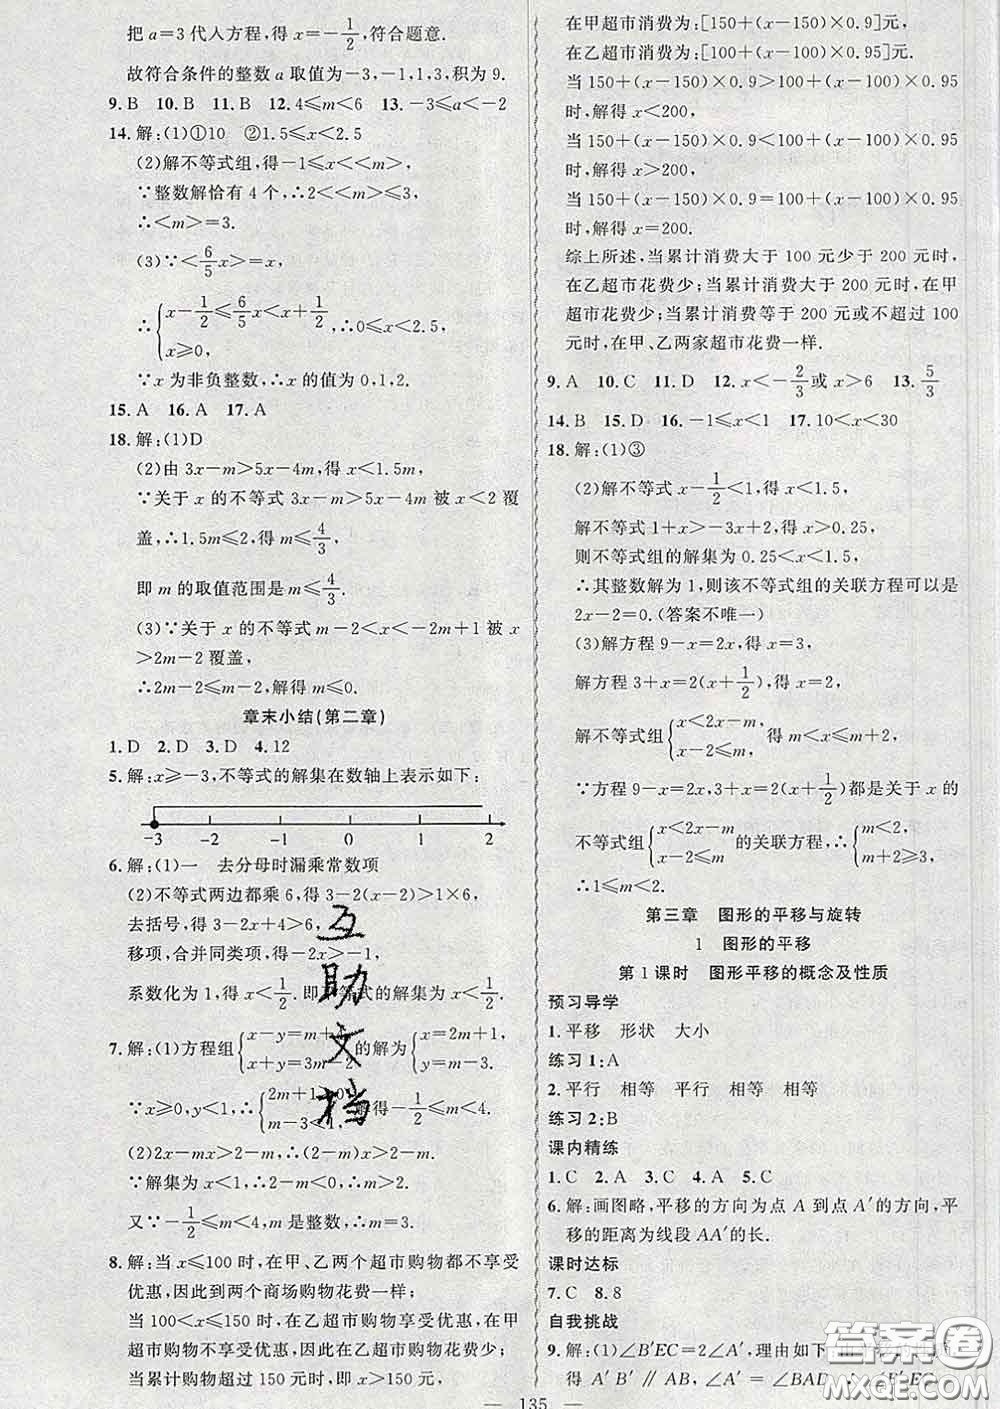 把 a=3 代人方程,得 x=-1/2,符合题意.
故符合条件的整数 a 取值为-3,-1,1,3,积为 9.
9. B 10. B 11. B 12. 4≤m<6 13. -3≤a<-2
14. 解:(1)①10 ②1.5≤x<2.5
(2)解不等式组,得-1≤x<<m>,
∵整数解恰有 4 个,∴2<<m>≤3,
∴<m>=3.
(3)∵<6/5x>=x,
∴{x-1/2≤6/5x<x+1/2, x≥0, ∴0≤x<2.5,
∵x 为非负整数,∴x 的值为 0,1,2.
15. A 16. A 17. A
18. 解:(1)D
(2)由 3x-m>5x-4m,得 x<1.5m,
∵关于 x 的不等式 3x-m>5x-4m 被 x<2 覆
盖,∴1.5m≤2,得 m≤4/3,
即 m 的取值范围是 m≤4/3.
(3)∵关于 x 的不等式 m-2<x<-2m+1 被 x
>2m-2 覆盖,
∴2m-2≤m-2,解得 m≤0.
章末小结(第二章)
1. D 2. D 3. D 4. 12
5. 解:x≥-3,不等式的解集在数轴上表示如下:
-3 -2 -1 0 1 2
6. 解:(1)一 去分母时漏乘常数项
(2)不等式两边都乘 6,得 3-2(x-2)>1×6,
去括号,得 3-2x+4>6,
移项,合并同类项,得-2x>-1,
系数化为 1,得 x<1/2. 即不等式的解集为 x<1/2.
7. 解:(1)方程组{x-y=m+4, x+y=3m-2 的解为{x=2m+1, y=m-3.
∵x≥0,y<1,∴{2m+1≥0, m-3<1, 解得-1/2≤m<4.
(2)2x-mx>2-m,∴(2-m)x>2-m.
∵解集为 x<1,∴2-m<0,∴m>2,
又∵-1/2≤m<4,m 是整数,∴m=3.
8. 解:当 x≤100 时,在甲、乙两个超市购物都不享受
优惠,因此到两个商场购物花费一样;
当 100<x≤150 时,在乙超市购物享受优惠,在甲
超市购物不享受优惠,因此在乙超市购物花费少;
当累计购物超过 150 元时,即 x>150 元,
在甲超市消费为:[150+(x-150)×0.9]元,
在乙超市消费为:[100+(x-100)×0.95]元.
当 150+(x-150)×0.9>100+(x-100)×0.95
时,解得 x<200,
当 150+(x-150)×0.9<100+(x-100)×0.95
时,解得 x>200,
当 150+(x-150)×0.9=100+(x-100)×0.95
时,解得 x=200.
综上所述,当累计消费大于 100 元少于 200 元时,
在乙超市花费少;当累计消费大于 200 元时,在甲
超市花费少;当累计消费等于 200 元或不超过 100
元时,在甲、乙两家超市花费一样.
9. A 10. C 11. D 12. x<-2/3或 x>6 13. 5/3
14. B 15. D 16. -1≤x<1 17. 10<x<30
18. 解:(1)③
(2)解不等式 x-1/2<1,得 x<1.5,
解不等式 1+x>-3x+2,得 x>0.25,
则不等式组的解集为 0.25<x<1.5,
∴其整数解为 1,则该不等式组的关联方程可以是
2x-2=0.(答案不唯一)
(3)解方程 9-x=2x,得 x=3,
解方程 3+x=2(x+1/2),得 x=2,
解不等式组{x<2x-m, x-2≤m, 得 m<x≤m+2,
∵方程 9-x=2x,3+x=2(x+1/2)都是关于 x 的
不等式组{x<2x-m, x-2≤m 的关联方程,∴{m<2, m+2≥3,
∴1≤m<2.
第三章 图形的平移与旋转
1 图形的平移
第 1 课时 图形平移的概念及性质
预习导学
1. 平移 形状 大小
练习 1:A
2. 平行 相等 平行 相等 相等
练习 2:B
课内精练
1. C 2. A 3. C 4. A 5. C
6. 解:画图略,平移的方向为点 A 到点 A′的方向,平
移的距离为线段 AA′的长.
课时达标
7. C 8. 8
自我挑战
9. 解:(1)∠B′EC=2∠A′,理由如下
得 A′B′∥AB,∠A′=∠BAD,∴∠B′EC
— 135 —
互助文档
答案圈
MXQE.COM